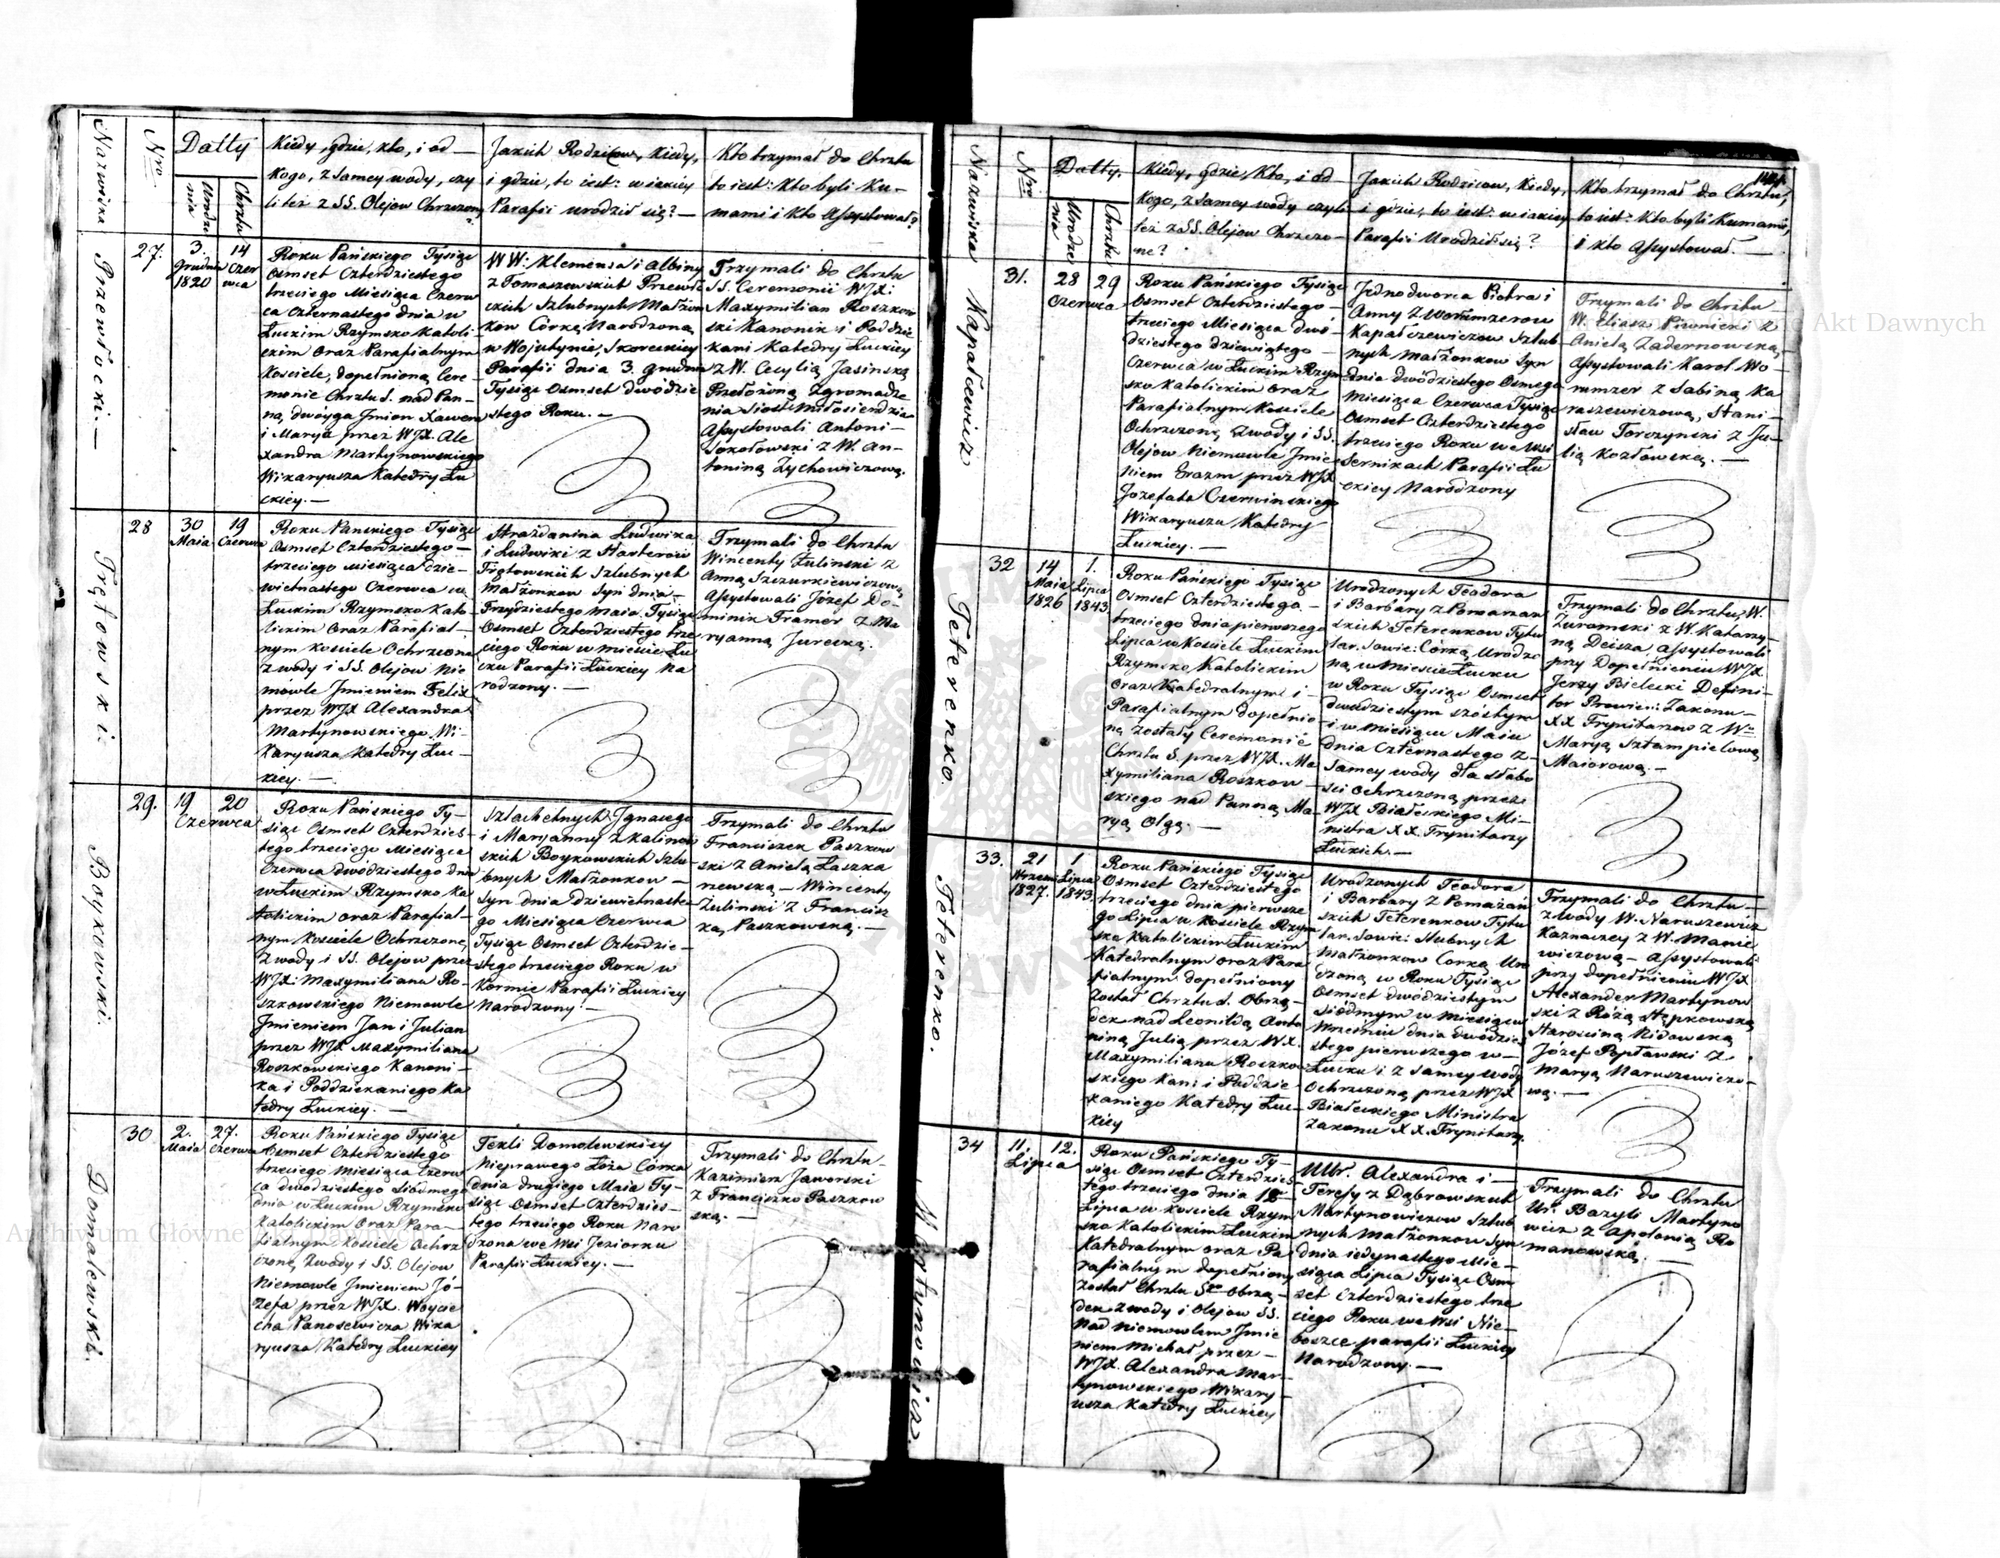 Nazwiska
Nro
Datty
Urodze
nia
Chrztu
Kiedy, gdzie, kto, i od
kogo, z samey wody, czy
li też z SS. Olejow Chrzczony
Jakich Rodzicow, kiedy,
i gdzie, to iest: w iakiey
Parafii urodził się? —
Kto trzymał do Chrztu
to iest: kto byli Ku-
mami i kto Assystował?
Przewłocki. —
27.
3.
Grudnia
1820
14
Czer
wca
Roku Pańskiego Tysiąc
Osmset Czterdziestego
trzeciego Miesiąca Czerw
ca Czternastego dnia w
Łuckim Rzymsko Katoli
ckim oraz Parafialnym
Kosciele, dopełnioną Cere
monie Chrztu S. nad Pan-
ną, dwóyga Jmion Xawera
i Marya przez WJX. Ale
xandra Martynowskiego
Wikaryusza Katedry Łu
ckiey. —
WW: Klemensa i Albiny
z Tomaszewskich Przewło
ckich Szlubnych Małżon
kow Córkę Narodzoną
w Wojutynie, Skoreckiey
Parafii dnia 3. Grudnia
Tysiąc Osmset dwódzie
stego Roku. —
Trzymali do Chrztu
SS. Ceremonii WJX:
Maxymilian Roszkow
ski Kanonik i Poddzie
kani Katedry Łuckiey
z W. Cecylią Jasinską
Przełożoną Zgromadze
nia Siost: Miłosierdzia
Assystowali Antoni —
Sokołowski z W. An-
toniną Zychowiczową.
Trętowski:
28
30
Maia
19
Czerwca
Roku Pańskiego Tysiąc
Osmset Czterdziestego —
trzeciego miesiąca dzie-
wietnastego Czerwca w
Łuckim Rzymsko Kato-
lickim oraz Parafial-
nym Kosciele Ochrzczone
z wody i SS. Olejow Nie
mowle Jmieniem Felix
przez WJX Alexandra
Martynowskiego Wi-
karyusza Katedry Łuc-
kiey. —
Ludwika
i Ludwiki z Harterow
Szlubnych
Małżonkow Syn dnia —
Trzydziestego Maia Tysiąc
Osmset Czterdziestego trze
ciego Roku w miescie Łu
cku Parafii Łuckiey Na
rodzony. —
Trzymali do Chrztu
Wincenty Żulinski z
Anną Szczurkiewiczową
Assystowali Józef Do-
minik Framer z Ma
ryanną Jurecką.
Boykowski:
29.
19
20
Czerwca
Roku Pańskiego Ty-
siąc Osmset Czterdzies-
tego trzeciego Miesiąca
Czerwca dwódziestego dnia
w Łuckim Rzymsko Ka
tolickim oraz Parafial-
nym Kosciele Ochrzczone,
z wody i SS. Olejow przez
WJX: Maxymiliana Ro-
szkowskiego Niemowle
Jmieniem Jan i Julian
przez WJX Maxymiliana
Roszkowskiego Kanoni-
ka i Poddziekaniego Ka
tedry Łuckiey. —
Szlachetnych Jgnacego
i Maryanny z Kalinow
skich Boykowskich Szlu-
bnych Małżonkow —
Syn dnia Dziewietnaste-
go Miesiąca Czerwca
Tysiąc Osmset Czterdzie-
stego trzeciego Roku w
Kormie Parafii Łuckiey
Narodzony. —
Trzymali do Chrztu
Franciszek Paszkow
ski z Anielą Łaszka
rzewską — Wincenty
Żulinski z Francisz
ką Paszkowską. —
Domalewska.
30
2.
Maia
27.
Czerwca
Roku Pańskiego Tysiąc
Osmset Czterdziestego
trzeciego Miesiąca Czerw
ca dwódziestego siódmego
dnia w Łuckim Rzymsko
Katolickim oraz Para-
fialnym Kosciele Ochrz
czone, z wody i SS. Olejow
Niemowle Jmieniem Jó-
zefa przez WJX. Woycie
cha Panasewicza Wika
ryusza Katedry Łuckiey
Tekli Domolewskiey
Nieprawego Łoża Córka
dnia drugiego Maia Ty-
siąc Osmset Czterdzies-
tego trzeciego Roku Naro
dzona we Wsi Jeziorku
Parafii Łuckiey. —
Trzymali do Chrztu
Kazimierz Jaworski
z Franciszką Paszkow
ską. —
Nazwiska
Nro
Datty.
Urodze
nia
Chrztu
Kiedy, gdzie, Kto, i od
Kogo, z samey wody czyli
też za SS. Olejow Chrzczo-
ne?
Jakich Rodzicow, Kiedy,
i gdzie, to iest: w iakiey
Parafii Urodził się?
Kto trzymał do Chrztu,
to iest: kto byli Kumami,
i kto Assystował. —
Kapałcewicz
31.
28
29
Czerwca
Roku Pańskiego Tysiąc
Osmset Czterdziestego —
trzeciego Miesiąca dwó-
dziestego dziewiątego —
Czerwca w Łuckim Rzym
sko Katolickim oraz
Parafialnym Kosciele
Ochrzczone z wody i SS.
Olejow Niemowle Jmie
niem Erazm przez WJX
Józefata Czerwinskiego
Wikaryusza Katedry
Łuckiey. —
Jednodworca Piotra i
Anny z Wormzerow
Kapałczewiczow Szlub
nych Małżonkow Syn
dnia dwódziestego Osmego
Miesiąca Czerwca Tysiąc
Osmset Czterdziestego
trzeciego Roku we Wsi
Sernikach Parafii Łu
ckiey Narodzony
Trzymali do Chrztu —
W. Eliasz Piwnicki z
Anielą Zadernowską, —
Assystowali Karol Wo-
rmzer z Sabiną Ka
raszewiczową, Stani-
sław Torczynski z Ju-
lią Kozłowską. —
Teterenko.
32
14
Maia
1826
1.
Lipca
1843
Roku Pańskiego Tysiąc
Osmset Czterdziestego —
trzeciego dnia pierwszego
Lipca w Kosciele Łuckim
Rzymsko Katolickim
oraz Katedralnym i
Parafialnym dopełnio-
ną zostały Ceremonie
Chrztu S. przez WJX. Ma
xymiliana Roszkow —
skiego nad Panną Ma
ryą Olgą. —
Urodzonych Teodora
i Barbary z Pomarzan
skich Teterenkow Tytu
lar. Sowie: Córką Urodzo
ną w Miescie Łucku
w Roku Tysiąc Osmset
dwódziestym szóstym
i w Miesiącu Maiu
dnia Czternastego z
Samey wody dla słabo
sci Ochrzczoną przez
WJX Białeckiego Mi-
nistra XX. Trynitarzy
Łuckich. —
Trzymali do Chrztu, W.
Żuromski z W. Katarzy-
ną Deisza, assystowali
przy Dopełnieniu WJX
Jerzy Bielecki Defini-
tor Prowin: Zakonu —
XX Trynitarzow z Wną
Maryą Sztampielową
Maiorową. —
Teterenko.
33.
21
Wrzesn:
1827.
1
Lipca
1843
Roku Pańskiego Tysiąc
Osmset Czterdziestego
trzeciego dnia pierwsze
go Lipca w Kosciele Rzym
sko Katolickim Łuckim
Katedralnym oraz Para
fialnym dopełniony
został Chrztu S. Obrzą-
dek nad Leonildą Anto
niną Julią przez WX.
Maxymiliana Roszkow
skiego Kan: i Poddzie
kaniego Katedry Łuc-
kiey
Urodzonych Teodora
i Barbary z Pomazan
skich Teterenkow Tytu
lar. Sowie: Slubnych
Małżonkow Corką Uro
dzoną w Roku Tysiąc
Osmset dwódziestym
siódmym w Miesiącu
Wrzesniu dnia dwódzie
stego pierwszego w —
Łucku i z Samey wody
Ochrzczoną przez WJX
Białeckiego Ministra
Zakonu XX. Trynitarzy
Trzymali do Chrztu —
z wody W. Naruszewicz
Kaznaczey z W. Mance
wiczową — Assystowali
przy dopełnieniu WJX
Alexander Martynow
ski z Różą Stępkowską
Starosciną Kidowską
Józef Popławski z
Maryą Naruszewiczo-
wą. —
Martynowicz.
34
11.
12.
Lipca
Roku Pańskiego Ty-
siąc Osmset Czterdzies-
tego trzeciego dnia 12
Lipca w Kosciele Rzym
sko Katolickim Łuckim
Katedralnym oraz Pa
rafialnym dopełniony
został Chrztu Sgo Obrzą-
dek z wody i Olejow SS.
Nad Niemowlem Jmie
niem Michał przez —
WJX. Alexandra Mar-
tynowskiego Wikary-
usza Katedry Łuckiey
UUr. Alexandra i —
Teresy z Dąbrowskich
Martynowiczow Szlub
nych Małżonkow Syn
dnia iedynastego Mie-
siąca Lipca Tysiąc Osm
set Czterdziestego trze
ciego Roku we Wsi Nie-
boszce parafii Łuckiey
Narodzony. —
Trzymali do Chrztu
Ur. Bazyli Martyno
wicz z Apolonią Ro
manowską. —
Archiwum Główne Akt Dawnych